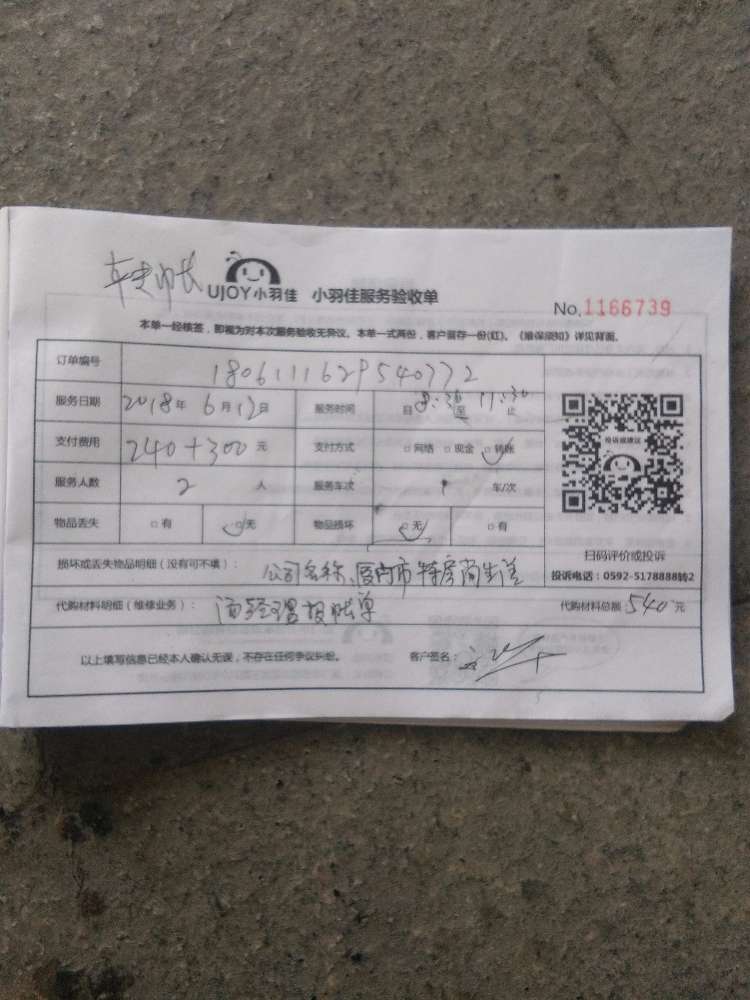 UJOY小羽佳 小羽佳服务验收单
No.1166739
本单一经核签，即视为对本次服务验收无异议。本单一式两份，客户留存一份(红)。《维保须知》详见背面。
订单编号 1806111629540772
服务日期 2018年 6月12日 服务时间 自 至 11:30 止
支付费用 240+300 元 支付方式 □网络 □现金 □转账
服务人数 2 人 服务车次 车/次
物品丢失 □有 □无 物品损坏 □无 □有
投诉或建议
扫码评价或投诉
投诉电话：0592-5178888转2
损坏或丢失物品明细（没有可不填）： 公司名称、厦门市特房尚
代购材料明细（维修业务）： 汤经理报账单 代购材料总额：540 元
以上填写信息已经本人确认无误，不存在任何争议纠纷。 客户签名：